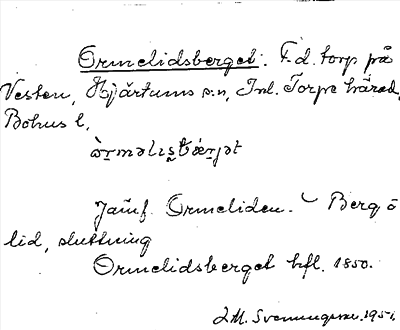 Ormelidsberget. F.d. torp på
Vesten, Hjärtums s:n, Inl. Torpe härad,
Bohus l.
Jämf. Ormeliden. – Berg o
lid, sluttning
Ormelidsberget hfl. 1850.
1951.